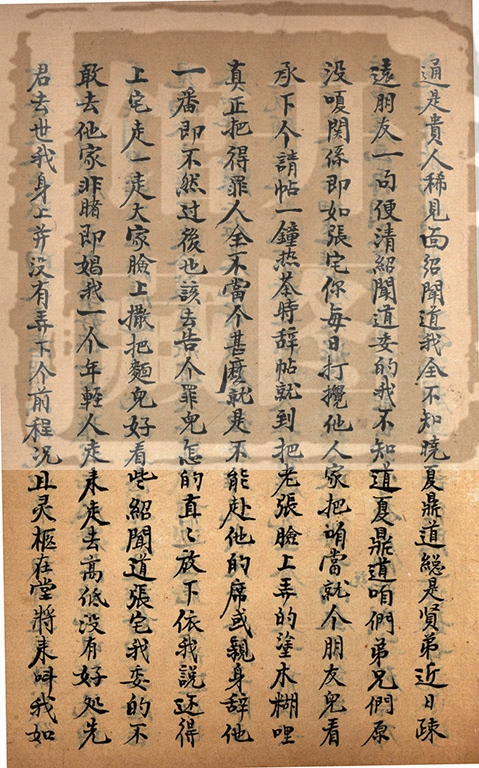 通是貴人稀見面紹聞道我全不知曉夏鼎道縂是賢弟近日疎
遠朋友一向便清紹聞道委的我不知道夏鼎道咱們弟兄們原
没嗄関係即如張宅你毎日打攪他人家把咱當就个朋友兒看
承下个請帖一鐘热茶時辞帖就到把老張臉上弄的塗木糊哩
真正把得罪人全不當个甚麽就是不能赴他的席或親身辞他
一番即不然过後也該去告个罪兒怎的直〻放下依我説还得
上宅走一走大家臉上撒把麵兒好看些紹聞道張宅我委的不
敢去他家非賭即娼我一个年輕人走来走去高低没有好处先
君去世我身上并没有弄下个前程况且灵柩在堂將来呌我如